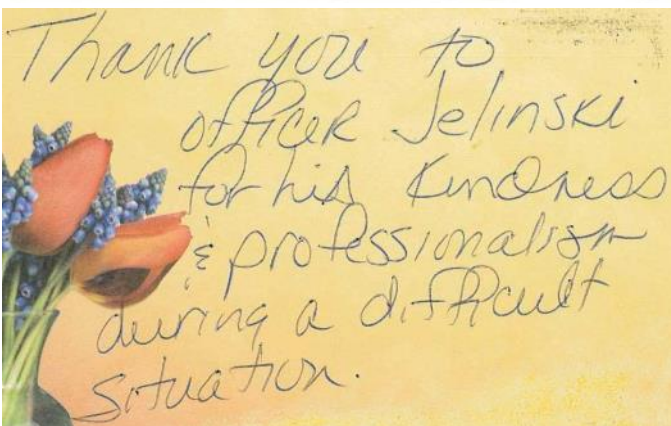 Thank you to
officer Jelinski
for his kindness
& professionalism
during a difficult
situation.